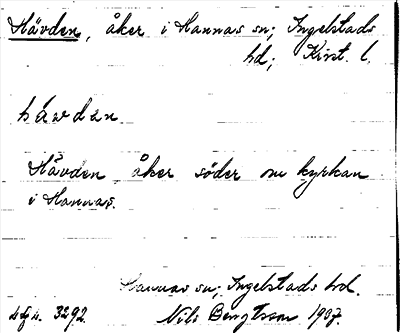 Hävden, åker i Hannas sn; Ingelstads
hd; Krist. l.
hävdan
Hävden, åker söder om kyrkan
i Hannas.
Hannas sn; Ingelstads hd.
3292. Nils Bengtsson 1907.